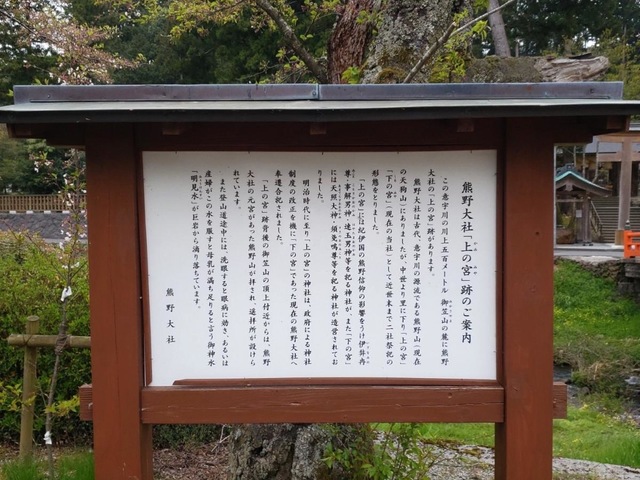 熊野大社「上の宮」跡のご案内
この意宇川の川上五百メートル 御笠山の麓に熊野
大社の「上の宮」跡があります。
熊野大社は古代、意宇川の源流である熊野山(現在
の天狗山)にありましたが、中世より里に下り「上の宮」
「下の宮」(現在の当社)として近世末まで二社祭祀の
形態をとりました。
「上の宮」には紀伊国の熊野信仰の影響をうけ伊弉冉
尊、事解男神、速玉男神等を祀る神社が、また「下の宮」
には天照大神、須曼鳴尊等を祀る神社が造営されてお
りました。
明治時代に至り「上の宮」の神社は、政府による神社
制度の改正を機に「下の宮」であった現在の熊野大社へ
奉遷合祀されました。
「上の宮」跡背後の御笠山の頂上付近からは、熊野
大社の元宮があった熊野山が拝され、遥拝所が設けら
れています。
また登山道途中には、洗眼すると眼病に効き、あるいは
産婦がこの水を服すと母乳が満ち足りると言う御神水
「明見水」が巨岩から滴り落ちています。
熊野大社